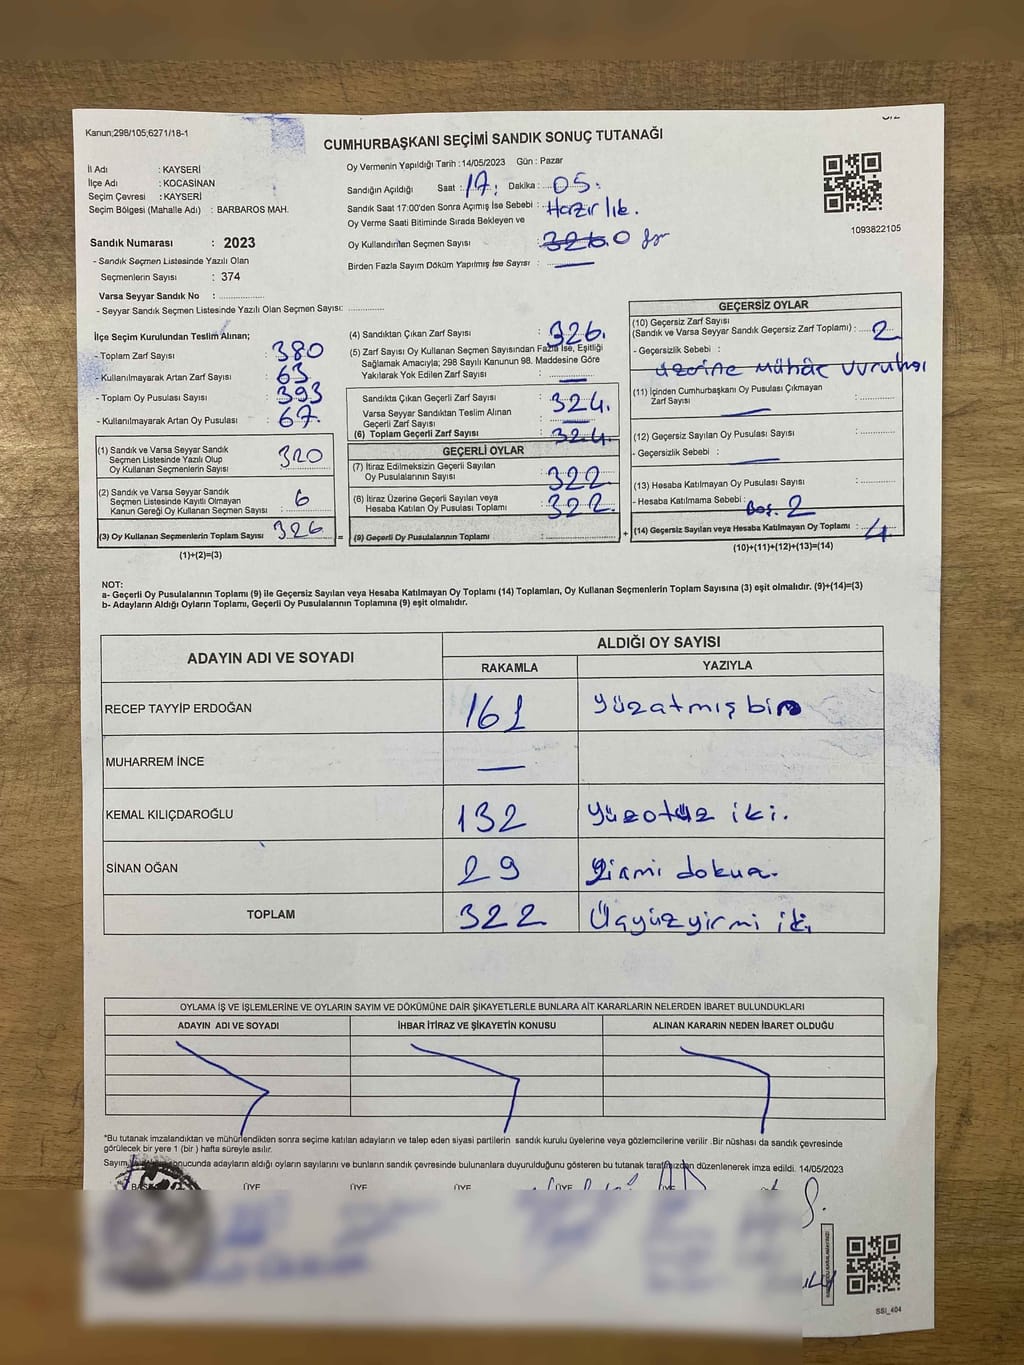 Kanun;298/105;6271/18-1
CUMHURBAŞKANI SEÇİMİ SANDIK SONUÇ TUTANAĞI
İl Adı : KAYSERİ
İlçe Adı : KOCASİNAN
Seçim Çevresi : KAYSERİ
Seçim Bölgesi (Mahalle Adı) : BARBAROS MAH.
Oy Vermenin Yapıldığı Tarih : 14/05/2023 Gün : Pazar
Sandığın Açıldığı Saat : 17: Dakika : 05:
Sandık Saat 17:00'den Sonra Açımış İse Sebebi : Hazırlık.
Oy Verme Saati Bitiminde Sırada Bekleyen ve
Oy Kullandırılan Seçmen Sayısı : 326.0
Birden Fazla Sayım Döküm Yapılmış İse Sayısı : —
1093822105
Sandık Numarası : 2023
- Sandık Seçmen Listesinde Yazılı Olan
Seçmenlerin Sayısı : 374
Varsa Seyyar Sandık No :
- Seyyar Sandık Listesinde Yazılı Olan Seçmen Sayısı:
İlçe Seçim Kurulundan Teslim Alınan;
- Toplam Zarf Sayısı : 380
- Kullanılmayarak Artan Zarf Sayısı : 63
- Toplam Oy Pusulası Sayısı : 393
- Kullanılmayarak Artan Oy Pusulası : 67
(1) Sandık ve Varsa Seyyar Sandık
Seçmen Listesinde Yazılı Olup
Oy Kullanan Seçmenlerin Sayısı : 320
(2) Sandık ve Varsa Seyyar Sandık
Seçmen Listesinde Kayıtlı Olmayan
Kanun Gereği Oy Kullanan Seçmen Sayısı : 6
(3) Oy Kullanan Seçmenlerin Toplam Sayısı 326 =
(1)+(2)=(3)
(4) Sandıktan Çıkan Zarf Sayısı : 326.
(5) Zarf Sayısı Oy Kullanan Seçmen Sayısından Fazla İse, Eşitliği
Sağlamak Amacıyla; 298 Sayılı Kanunun 98. Maddesine Göre
Yakılarak Yok Edilen Zarf Sayısı : —
Sandıkta Çıkan Geçerli Zarf Sayısı : 324.
Varsa Seyyar Sandıktan Teslim Alınan
Geçerli Zarf Sayısı : —
(6) Toplam Geçerli Zarf Sayısı : 324.
GEÇERLİ OYLAR
(7) İtiraz Edilmeksizin Geçerli Sayılan
Oy Pusulalarının Sayısı : 322
(8) İtiraz Üzerine Geçerli Sayılan veya
Hesaba Katılan Oy Pusulası Toplamı : 322.
(9) Geçerli Oy Pusulalarının Toplamı : +
GEÇERSİZ OYLAR
(10) Geçersiz Zarf Sayısı
(Sandık ve Varsa Seyyar Sandık Geçersiz Zarf Toplamı) : 2
- Geçersizlik Sebebi :
üzerine Mühür
(11) İçinden Cumhurbaşkanı Oy Pusulası Çıkmayan
Zarf Sayısı : —
(12) Geçersiz Sayılan Oy Pusulası Sayısı :
- Geçersizlik Sebebi : —
(13) Hesaba Katılmayan Oy Pusulası Sayısı :
- Hesaba Katılmama Sebebi : Boş. 2
(14) Geçersiz Sayılan veya Hesaba Katılmayan Oy Toplamı : 4
(10)+(11)+(12)+(13)=(14)
NOT:
a- Geçerli Oy Pusulalarının Toplamı (9) ile Geçersiz Sayılan veya Hesaba Katılmayan Oy Toplamı (14) Toplamları, Oy Kullanan Seçmenlerin Toplam Sayısına (3) eşit olmalıdır. (9)+(14)=(3)
b- Adayların Aldığı Oyların Toplamı, Geçerli Oy Pusulalarının Toplamına (9) eşit olmalıdır.
ADAYIN ADI VE SOYADI
ALDIĞI OY SAYISI
RAKAMLA YAZIYLA
RECEP TAYYİP ERDOĞAN 161 yüzatmış bir
MUHARREM İNCE —
KEMAL KILIÇDAROĞLU 132 yüzotuz iki.
SİNAN OĞAN 29 yirmi dokuz.
TOPLAM 322 Üçyüzyirmi iki.
OYLAMA İŞ VE İŞLEMLERİNE VE OYLARIN SAYIM VE DÖKÜMÜNE DAİR ŞİKAYETLERLE BUNLARA AİT KARARLARIN NELERDEN İBARET BULUNDUKLARI
ADAYIN ADI VE SOYADI İHBAR İTİRAZ VE ŞİKAYETİN KONUSU ALINAN KARARIN NEDEN İBARET OLDUĞU
*Bu tutanak imzalandıktan ve mühürlendikten sonra seçime katılan adayların ve talep eden siyasi partilerin sandık kurulu üyelerine veya gözlemcilerine verilir .Bir nüshası da sandık çevresinde
görülecek bir yere 1 (bir ) hafta süreyle asılır.
Sayım sonucunda adayların aldığı oyların sayılarını ve bunların sandık çevresinde bulunanlara duyurulduğunu gösteren bu tutanak tarafımızdan düzenlenerek imza edildi. 14/05/2023
ÜYE ÜYE ÜYE ÜYE
SSI_404